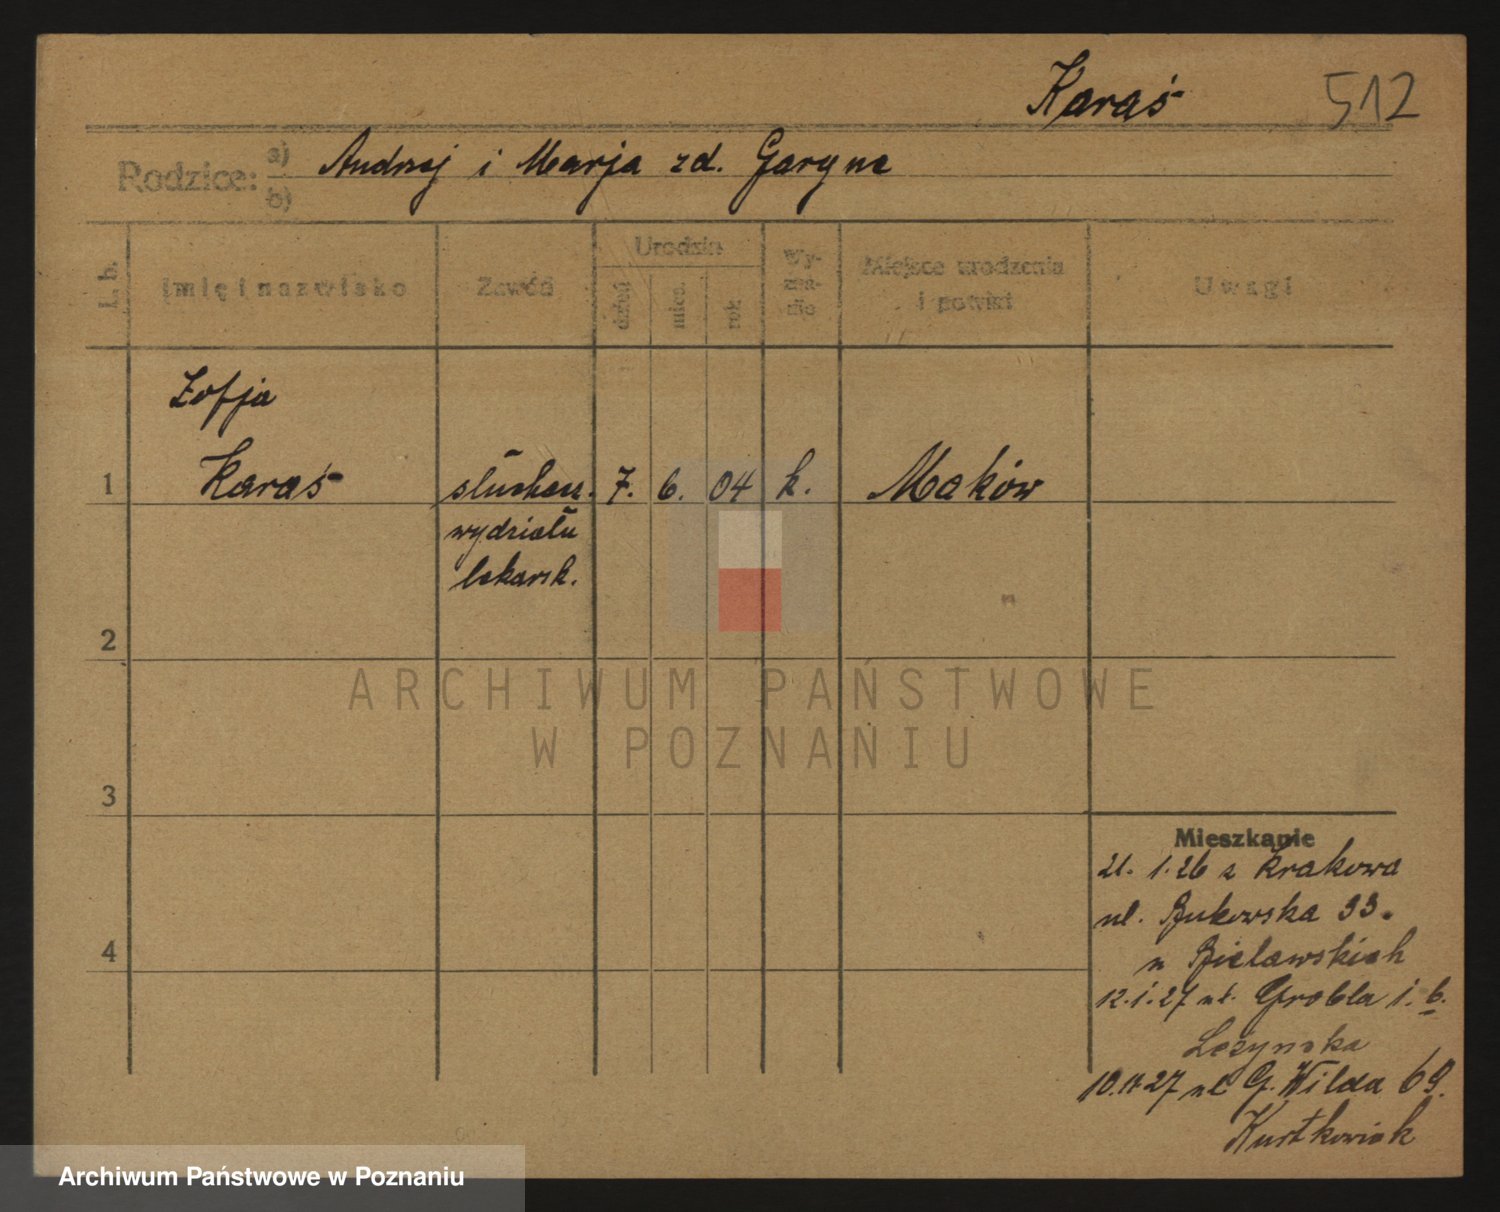 Karaś
512
Rodzice: a) b)
Andrzej i Marja zd. Garync
L. b.
Imię i nazwisko
Zawód
Urodzin
dzień
mies.
rok
Wyznanie
Miejsce urodzenia
i powiat
Uwagi
Zofja
1 Karaś słuchacz. 7. 6. 04 k. Maków
wydziału
lekarsk.
2
3
4
Mieszkanie
21. 1. 26 z Krakowa
ul. Bukowska 33.
u Bielawskich
12.1.27 ul. Grobla 1. b.
10.11.27 ul G. Wilda 69.
Kurtkowiak
ARCHIWUM PAŃSTWOWE
W POZNANIU
Archiwum Państwowe w Poznaniu